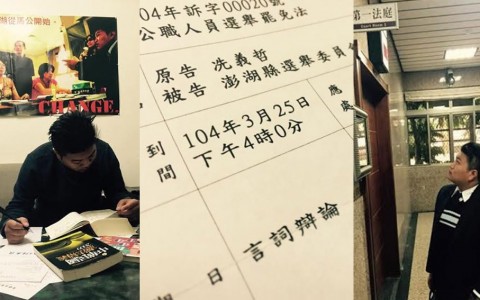 從馬公開始。
CHANGE
04年訴字00020號
公職人員選舉罷免法
原告 冼義哲
被告 澎湖縣選舉委員
到間
104年3月25日
下午4時0分
應
處
日 言詞辯論
第一法庭